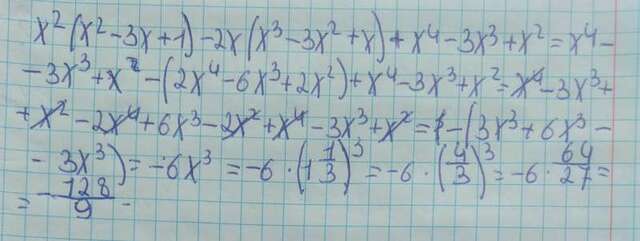 x²(x²-3x+1)-2x(x³-3x²+x)+x⁴-3x³+x²=x⁴-
-3x³+x²-(2x⁴-6x³+2x²)+x⁴-3x³+x²=x⁴-3x³+
+x²-2x⁴+6x³-2x²+x⁴-3x³+x²=-(3x³+6x³-
-3x³)=-6x³=-6·(1 1/3)³=-6·(4/3)³=-6·64/27=
=-128/9